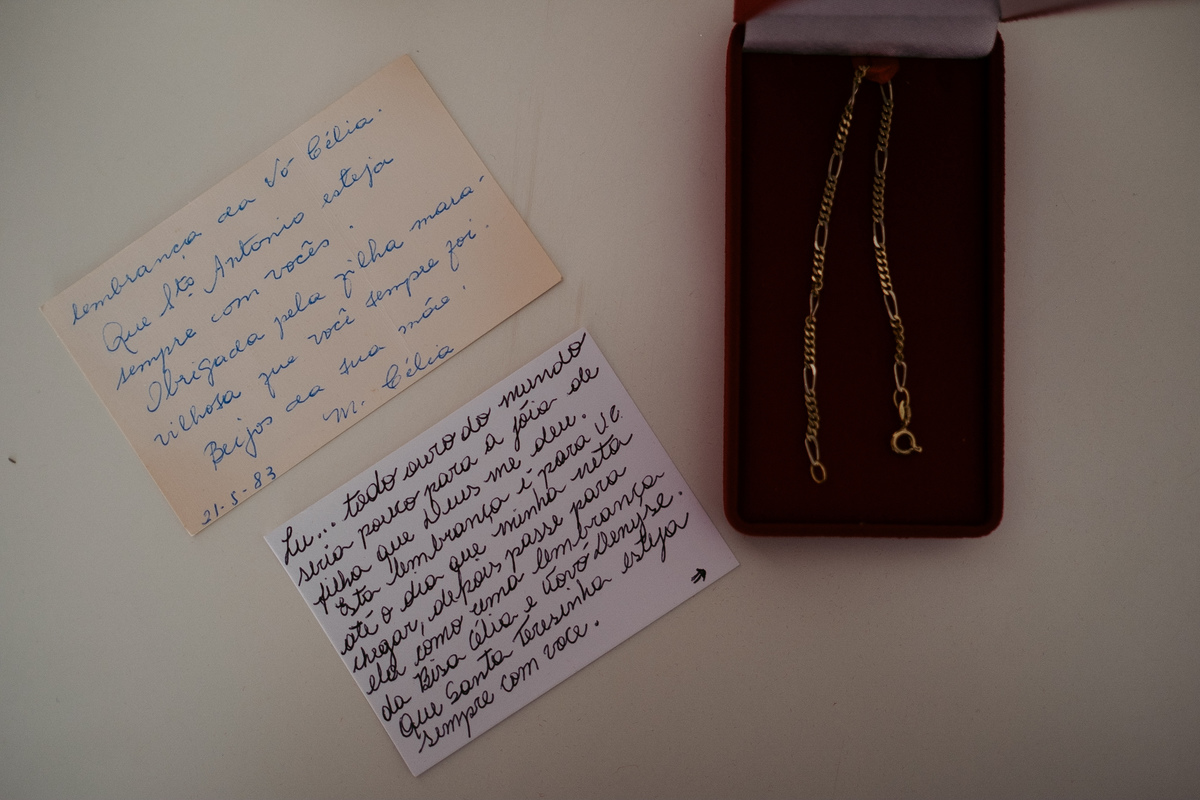 lembrança da Vó Célia.
Que Stº Antonio esteja
sempre com vocês.
Obrigada pela filha mara-
vilhosa que você sempre foi.
Beijos da sua mãe.
M. Célia
21-5-83
Lu... todo ouro do mundo
seria pouco para a jóia de
filha que Deus me deu.
Esta lembrança é para vc
até o dia que minha neta
chegar, depois passe para
ela como uma lembrança
da Bisa Célia e Vovó Denyse.
Que Santa Teresinha esteja
sempre com voce.
⇒